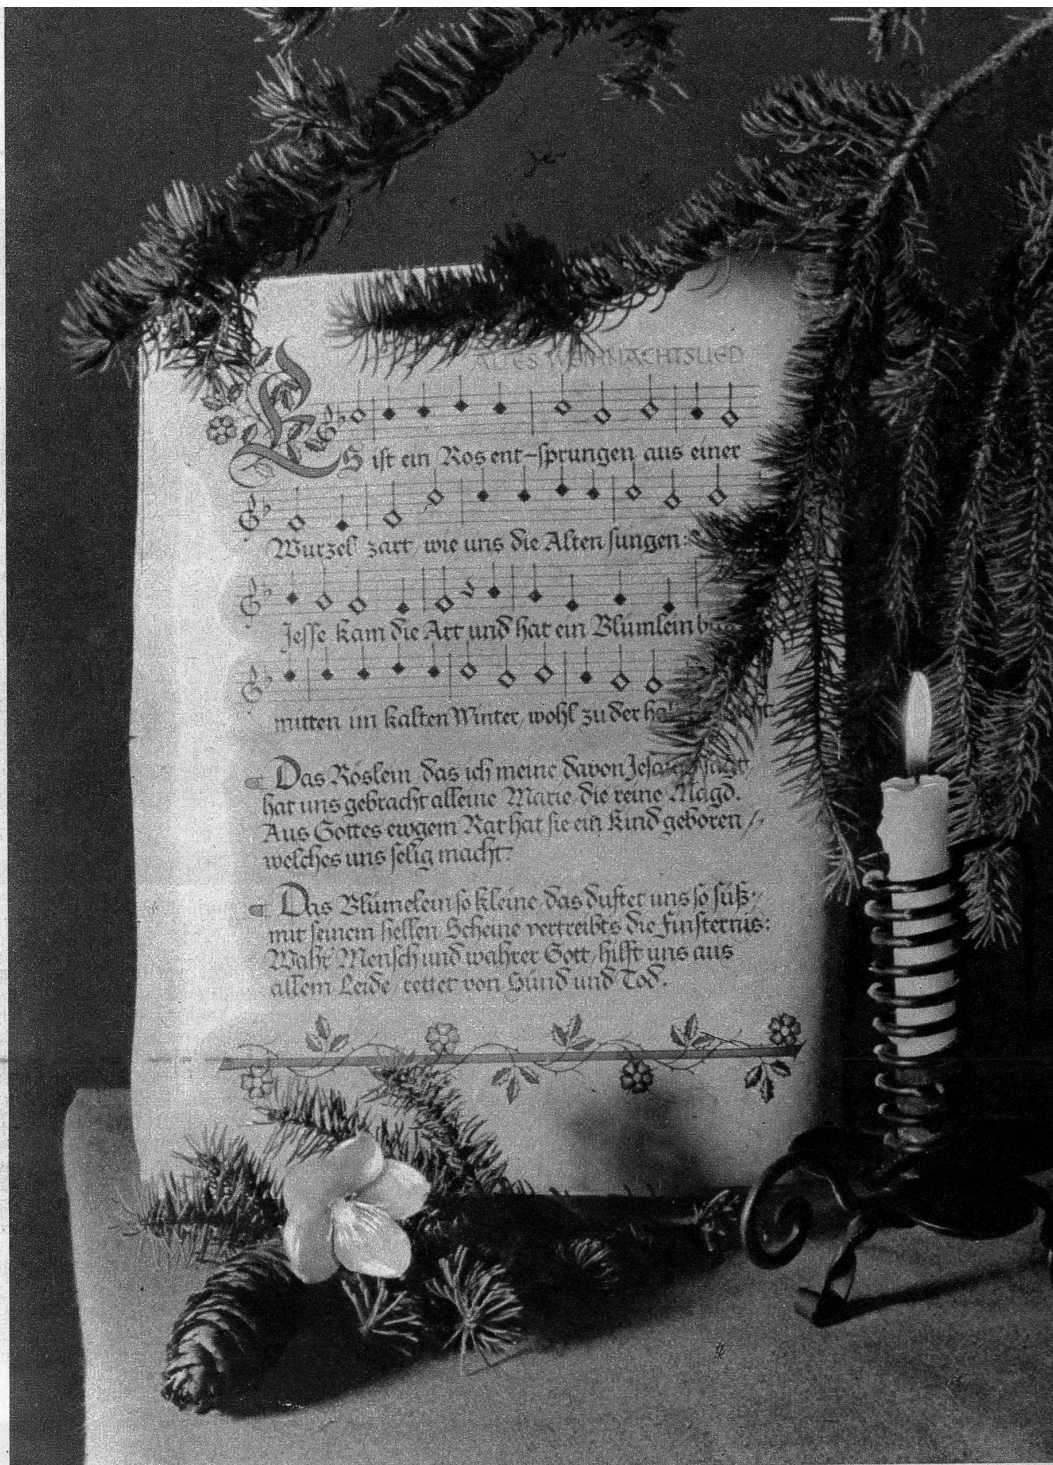 ALTES WEIHNACHTSLIED
ES ist ein Ros ent-sprungen aus einer
Wurzel zart, wie uns die Alten sungen:
Jesse kam die Art und hat ein Blümlein
mitten im kalten Winter, wohl zu der
Das Röslein das ich meine davon Jesaia sagt
hat uns gebracht alleine Marie die reine Magd.
Aus Gottes ewgem Rat hat sie ein Kind geboren /
welches uns selig macht.
Das Blümelein so kleine das duftet uns so süß
mit seinem hellen Scheine vertreibts die Finsternis:
Wahr Mensch und wahrer Gott, hilft uns aus
allem Leide, rettet von Sünd und Tod.